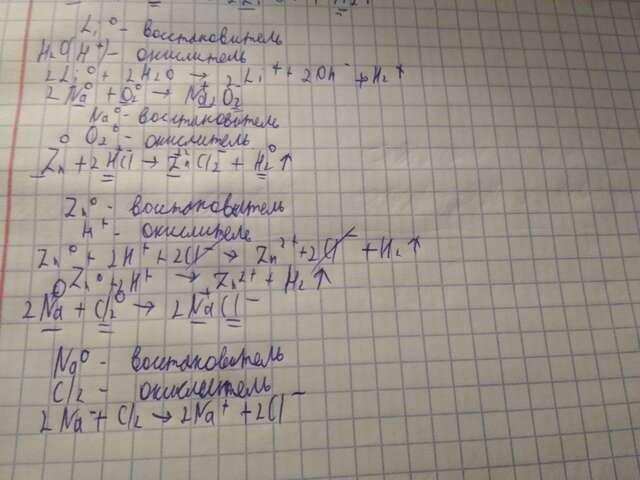 Li⁰ - восстановитель
H₂O(H⁺) - окислитель
2Li⁰ + 2H₂O → 2Li⁺ + 2OH⁻ + H₂↑
2Na⁰ + O₂⁰ → Na₂⁺O₂
Na⁰ - восстановитель
O₂⁰ - окислитель
Zn⁰ + 2HCl → ZnCl₂ + H₂⁰↑
Zn⁰ - восстановитель
H⁺ - окислитель
Zn⁰ + 2H⁺ + 2Cl⁻ → Zn²⁺ + 2Cl⁻ + H₂↑
Zn⁰ + 2H⁺ → Zn²⁺ + H₂↑
2Na⁰ + Cl₂⁰ → 2Na⁺Cl⁻
Na⁰ - восстановитель
Cl₂ - окислитель
2Na + Cl₂ → 2Na⁺ + 2Cl⁻